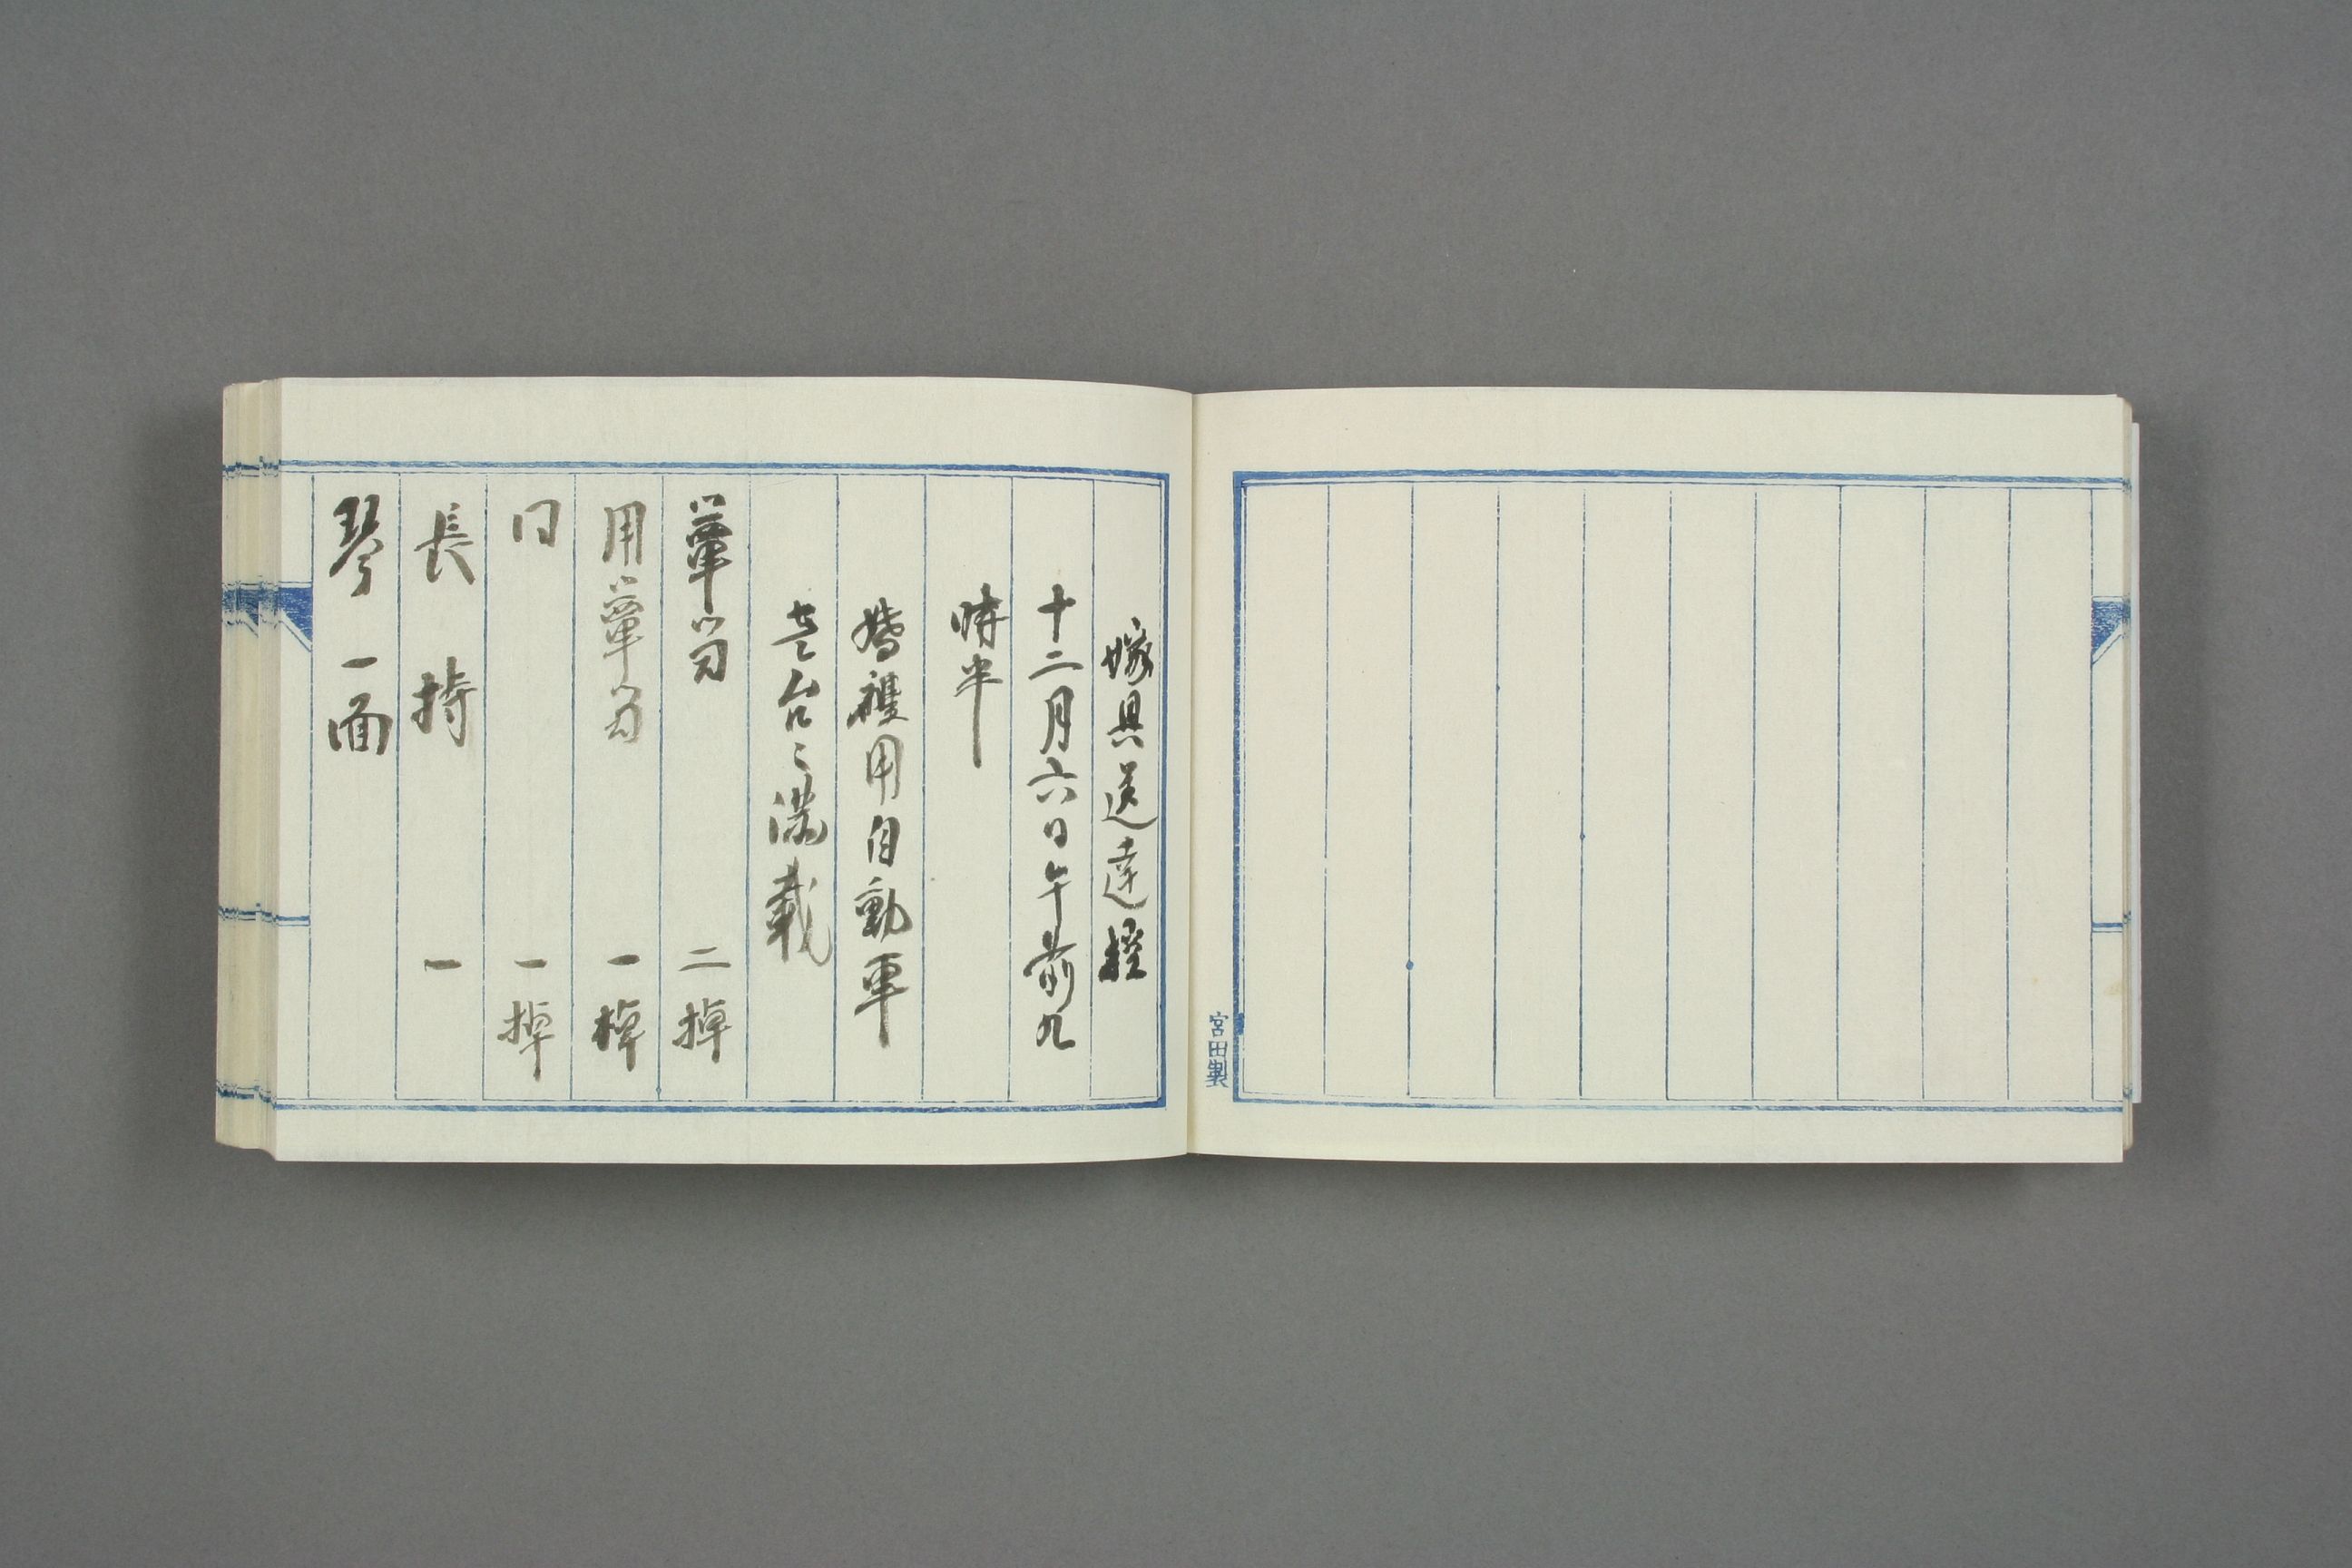 宮田製
嫁具送達控
十二月六日午前九
時半
婚禮用自動車
壱台ニ満載
簞笥 二棹
用簞笥 一棹
同 一棹
長持 一
琴一面